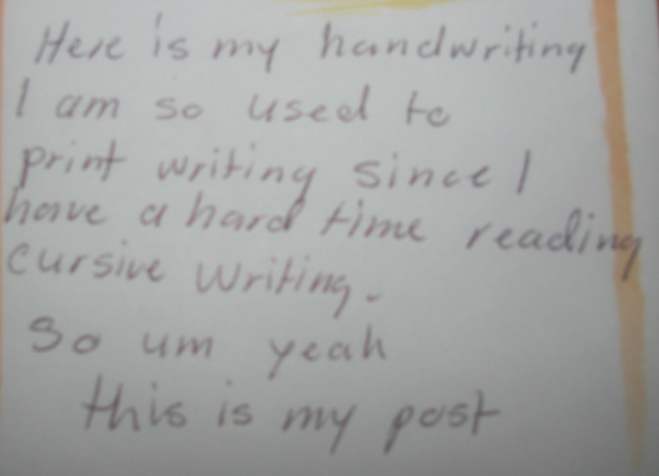 Here is my handwriting
I am so used to
print writing since I
have a hard time reading
cursive writing.
So um yeah
this is my post